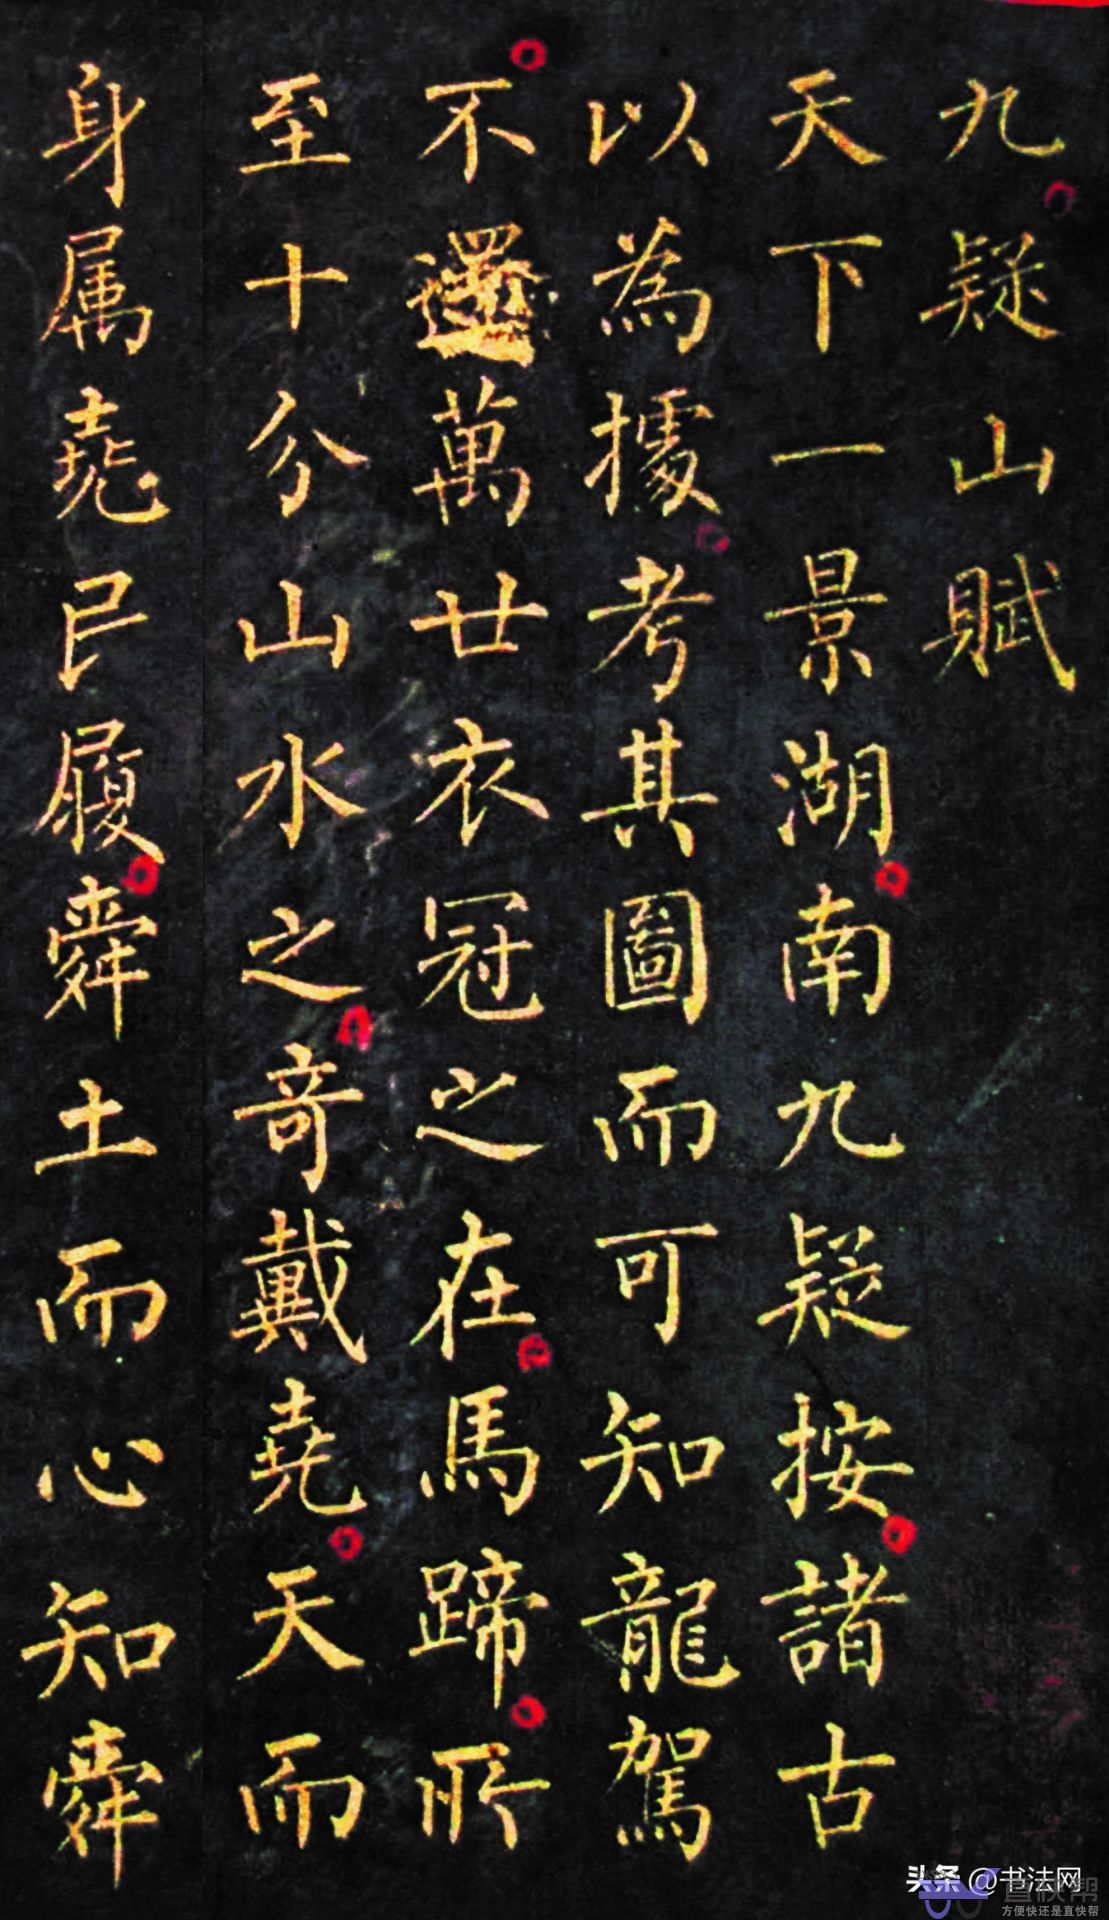 九疑山賦
天下一景湖南九疑按諸古
以為據考其圖而可知龍駕
不還萬廿衣冠之在馬蹄所
至十分山水之奇戴堯天而
身属堯民履舜土而心知舜
头条 @书法网
直快帮
方便快还是直快帮